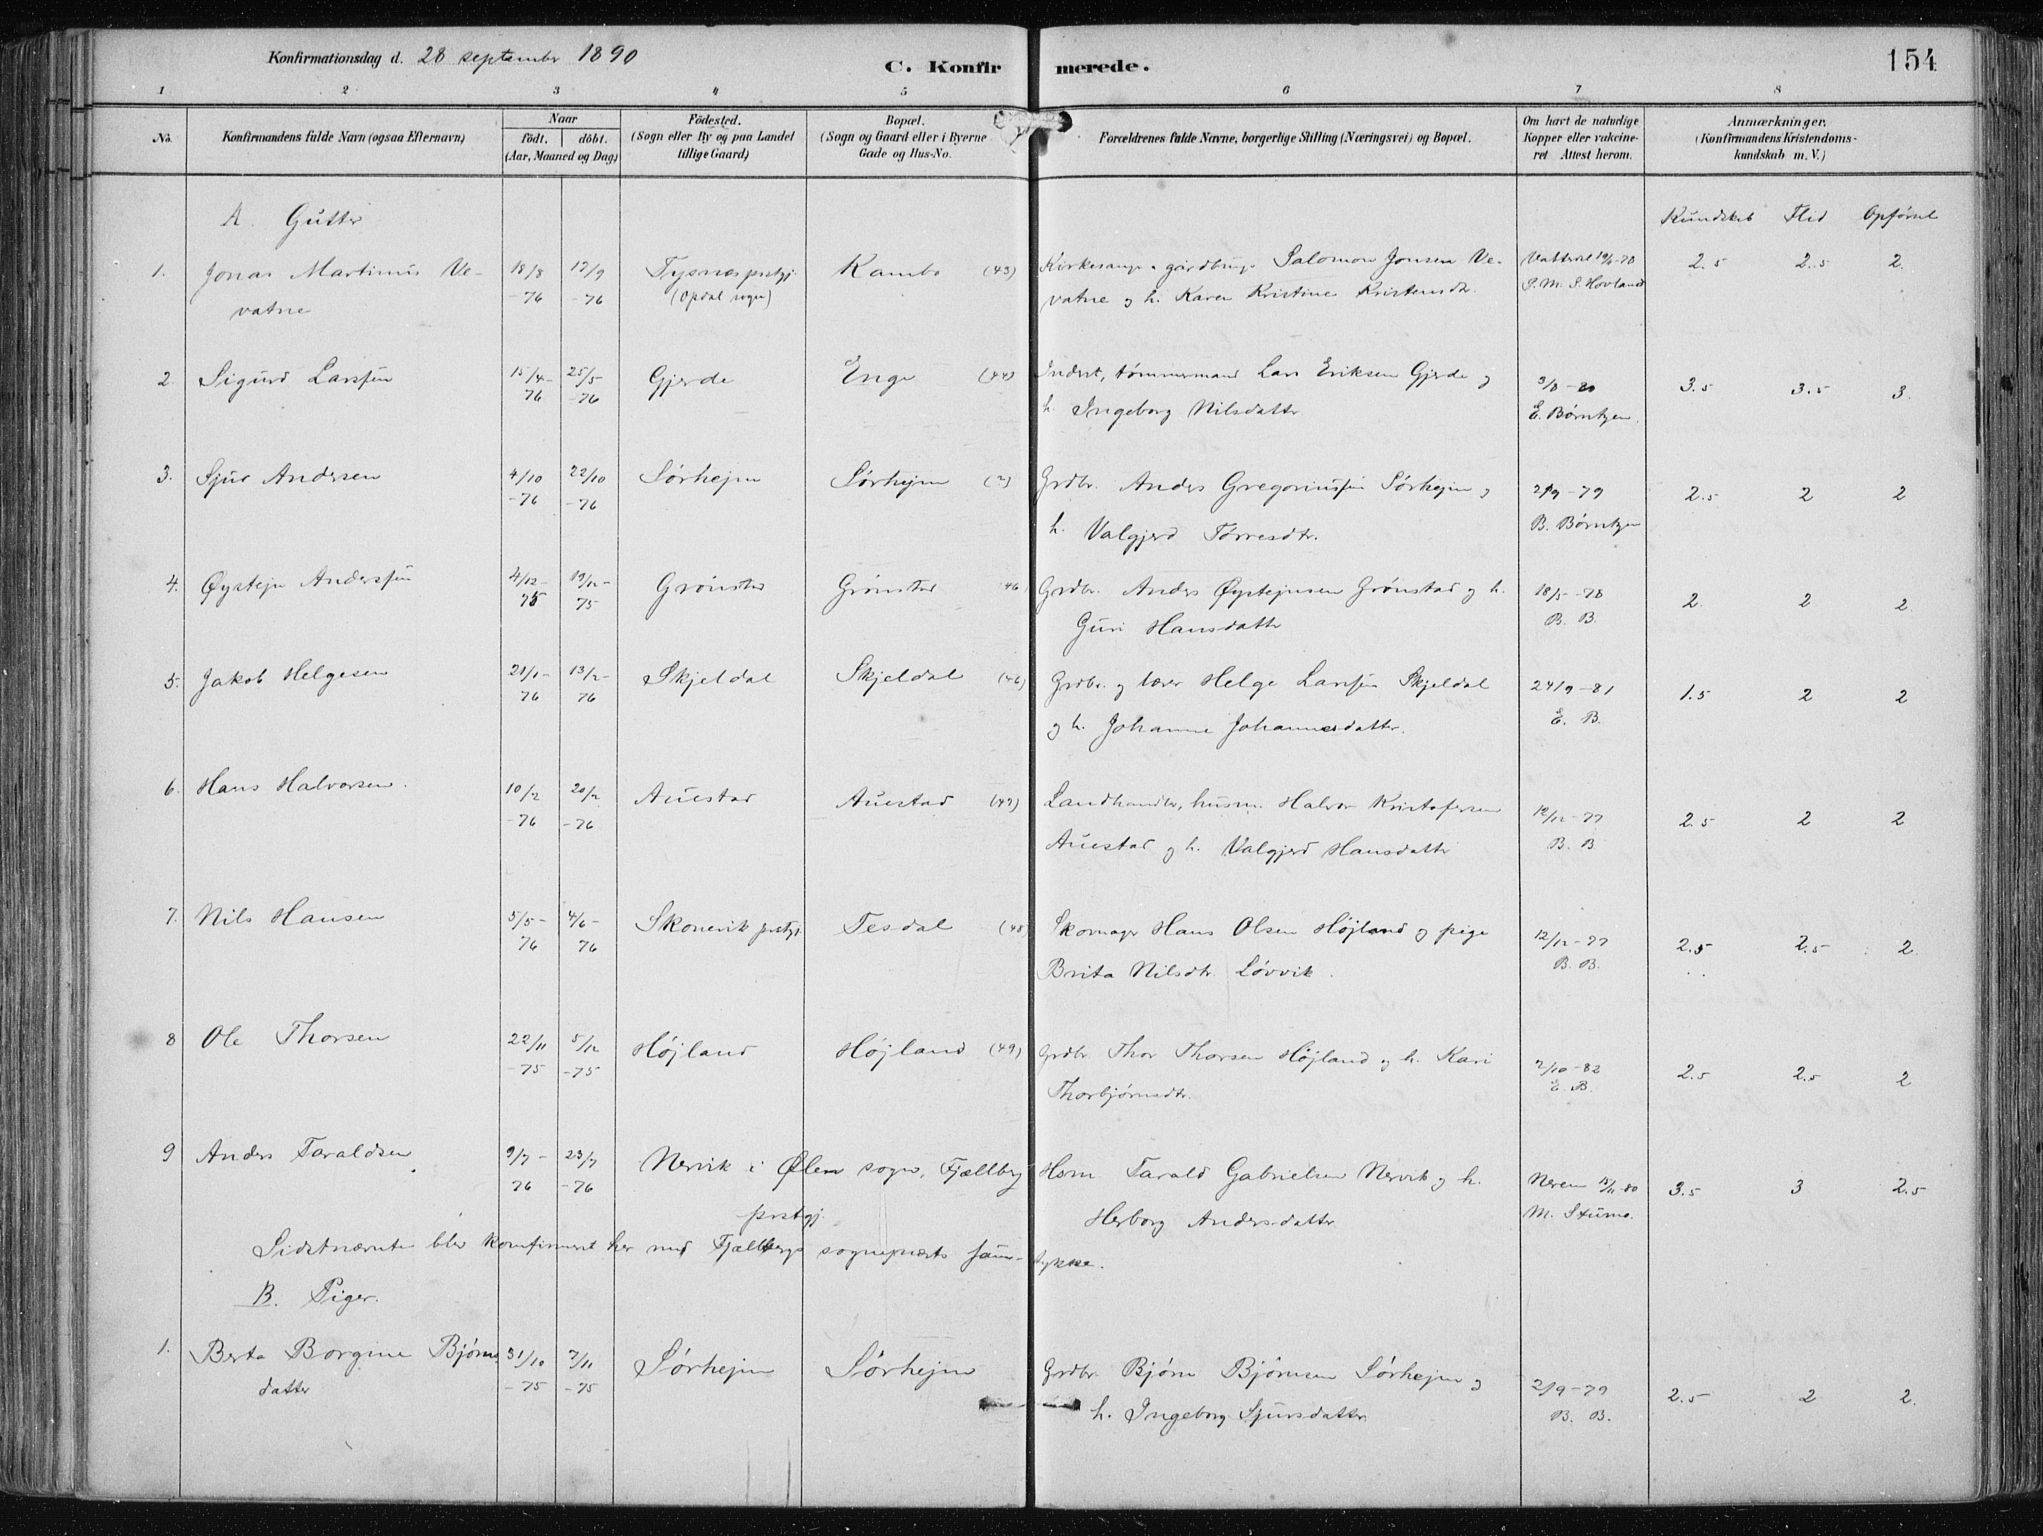 Konfirmationsdag d. 28 september 1890
C. Konfirmerede.
154
1 2 3 4 5 6 7 8
No. Konfirmandens fulde Navn (ogsaa Efternavn) Naar födt. döbt. (Aar, Maaned og Dag) Födested. (Sogn eller By og paa Landet tillige Gaard) Bopæl. (Sogn og Gaard eller i Byerne Gade og Hus-No. Forældrenes fulde Navne, borgerlige Stilling (Næringsvei) og Bopæl. Om havt de naturlige Kopper eller vakcineret Attest herom. Anmærkninger. (Konfirmandens Kristendomskundskab m. V.)
A. Gutter
Kundskab Flid Opførsel
1. Jonas Martinus Ve- 18/8 17/9 Tysnes prstgj. Kambo (43) Kirkesanger, gårdbrug. Salomon Jonsen Ve- 2.5 2.5 2.
vatne -76 -76 (Opdal sogn) vatne og h. Karen Kristine Kristensdtr. S. M. S. Hovland
2. Sigurd Larssen 15/4- 25/5 Gjerde Enge (44) Inderst, tømmermand Lars Eriksen Gjerde og 3/8-80 3.5 3.5 3.
76 -76 h. Ingeborg Nilsdatter E. Børntzen.
3. Sjur Andersen 4/10 22/10 Sørhejm Sørhejm (2) Grdbr. Anders Gregoriussen Sørhejm og 2/9-79 2.5 2 2
-76 -76 h. Valgjerd Tørresdtr. B. Børntzen
4. Øystejn Anderssen 4/12- 19/12- Grönstad Grönstad 46 Grdbr. Anders Øystejnsen Grønstad og h. 18/5-78 2. 2 2
75 75 Guri Hansdatter B. B.
5. Jakob Helgesen 21/1- 13/2- Skjeldal Skjeldal (46) Grdbr. og lærer Helge Larssen Skjeldal 24/9-81 1.5 2 2
76 76 og h. Johanne Johannesdatter. E. B.
6. Hans Halvorsen. 10/2 20/2 Auestad Auestad (47) Landhandler, husm. Halvor Kristofersen 12/12-77 2.5 2 2
-76 -76 Auestad og h. Valgjerd Hansdatter B. B.
7. Nils Hansen 5/5- 4/6- Skonevik prstgj. Tesdal (48 Skomager Hans Olsen Højland og pige 12/12-77 2.5 2.5 2
76 76 Brita Nilsdtr. Løvvik. B. B.
8 Ole Thorsen 22/11 5/12 Højland Højland (49) Grdbr. Thor Thorsen Højland og h. Kari 2/10-82 2.5 2.5 2
-75 -75 Thorbjørnsdtr. E. B.
9 Anders Taraldsen 9/7- 23/7 Nervik i Ølen sogn, Fjellberg Hsm Tarald Gabrielsen Nervik og h. 3.5 3 2.5
76 -76 prstgj. Herborg Andersdatter M. Stumo.
Sidstnævnte blev konfirmeret her med Fjellbergs sogneprests samtykke.
B. Piger.
1. Berta Borgine Bjørns 31/10 7/11 Sørhejm Sørhejm Grdbr. Bjørn Bjørnsen Sørhejm og 2/9-79 2.5 2 2.
datter -75 -75 h. Ingeborg Sjursdatter. B. B.